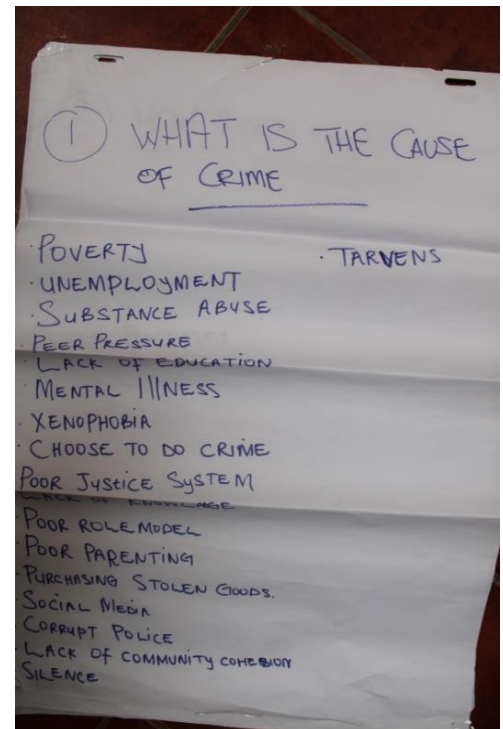 1 WHAT IS THE CAUSE
OF CRIME
· POVERTY
· TARVENS
· UNEMPLOYMENT
· SUBSTANCE ABUSE
· PEER PRESSURE
· LACK OF EDUCATION
· MENTAL IllNESS
· XENOPHOBIA
· CHOOSE TO DO CRIME
POOR JUSTICE SYSTEM
LACK OF KNOWLAGE
· POOR ROLE MODEL
· POOR PARENTING
· PURCHASING STOLEN GOODS.
· SOCIAL MEDIA
· CORRUPT POLICE
· LACK OF COMMUNITY COHESION
SILENCE